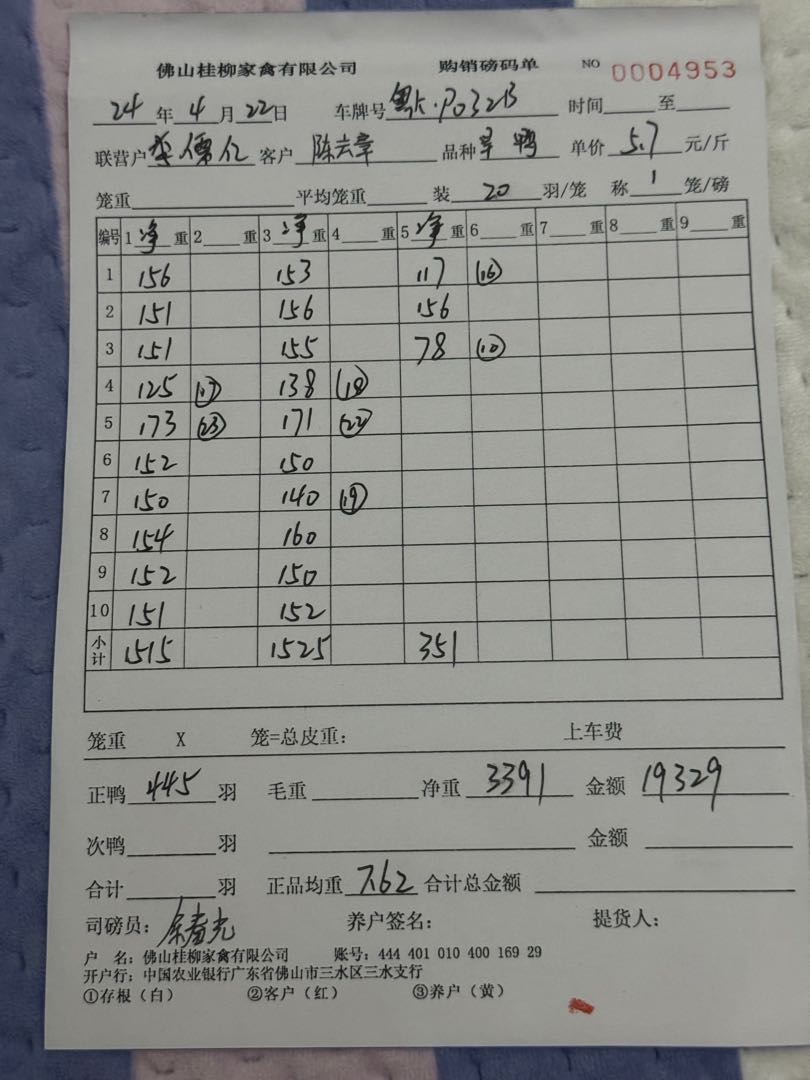 佛山桂柳家禽有限公司 购销磅码单 NO 0004953
24 年 4 月 22 日 车牌号 粤K·P032B 时间 至
联营户 李儒仁 客户 陈云章 品种 羊鸭 单价 5.7 元/斤
笼重 平均笼重 装 20 羽/笼 称 1 笼/磅
编号 1 净 重 2 重 3 净 重 4 重 5 净 重 6 重 7 重 8 重 9 重
1 156 153 117 ⑯
2 151 156 156
3 151 155 78 ⑩
4 125 ⑰ 138 ⑱
5 173 ㉓ 171 ㉒
6 152 150
7 150 140 ⑲
8 154 160
9 152 150
10 151 152
小计 1515 1525 351
笼重 X 笼=总皮重: 上车费
正鸭 445 羽 毛重 净重 3391 金额 19329
次鸭 羽 金额
合计 羽 正品均重 7.62 合计总金额
司磅员: 养户签名: 提货人:
户 名: 佛山桂柳家禽有限公司 账号: 444 401 010 400 169 29
开户行: 中国农业银行广东省佛山市三水区三水支行
①存根(白) ②客户(红) ③养户(黄)